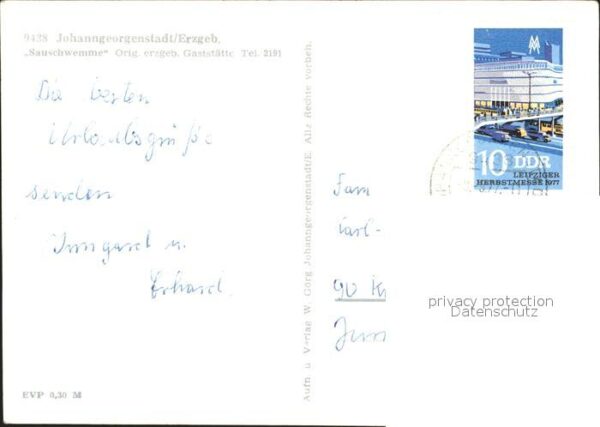 9438 Johanngeorgenstadt/Erzgeb.
„Sauschwemme“ Orig. erzgeb. Gaststätte Tel. 2191
Die besten
Urlaubsgrüße
senden
Irmgard u.
Erhard.
EVP 0,30 M
Aufn. u. Verlag W. Görg, Johanngeorgenstadt/E. Alle Rechte vorbeh.
10 DDR
LEIPZIGER
HERBSTMESSE 1977
Fam
Karl-
90 K
privacy protection
Datenschutz